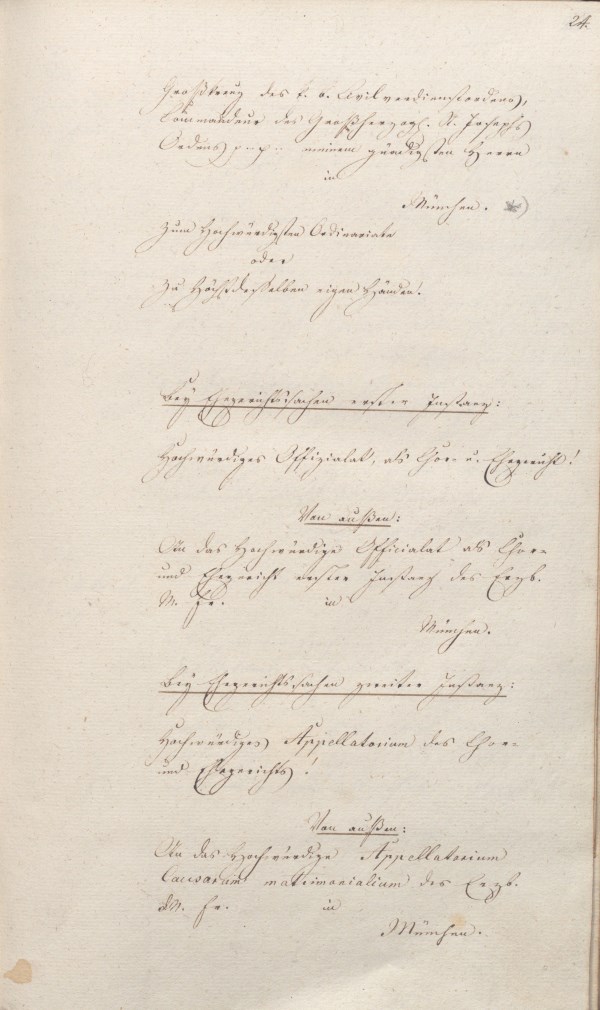 24.
Großkreuz des k. b. Civilverdienstordens,
Commandeur des Großherzogl. St. Josephs
Ordens p--p-- meinem gnädigsten Herrn
in
München. *)
Zum Hochwürdigsten Ordinariate
oder
Zu Höchstdesselben eigen Händen!
Bey Ehegerichtssachen erster Instanz:
Hochwürdiges Offizialat, als Chor- u. Ehegericht!
Von außen:
An das Hochwürdige Officialat als Chor-
und Ehegericht erster Instanz des Erzb.
M. Fr. in
München.
Bey Ehegerichtssachen zweiter Instanz:
Hochwürdiges Appellatorium des Chor-
und Ehegerichts!
Von außen:
An das Hochwürdige Appellatorium
Causarum matrimonialium des Erzb.
M. Fr. in
München.